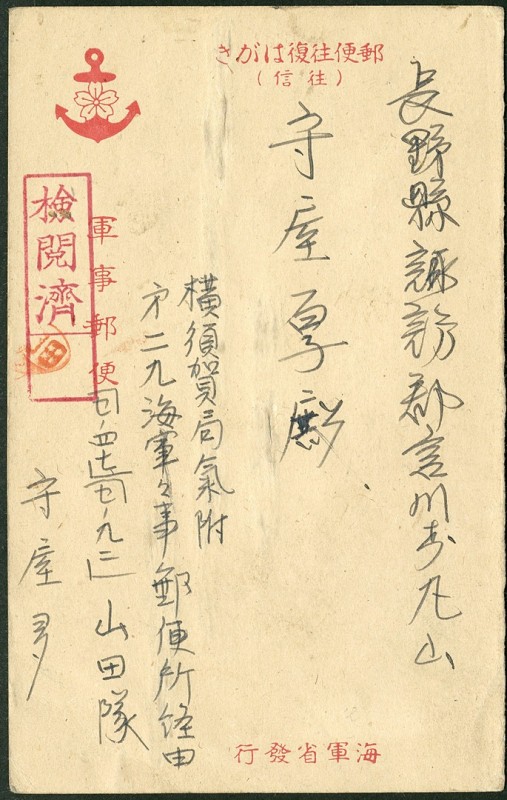 郵便往復はがき
（往信）
長野縣諏訪郡宮川村丸山
守屋享殿
横須賀局氣附
第二九海軍々事郵便所経由
山田隊
守屋多
軍事郵便
檢閲濟
海軍省發行